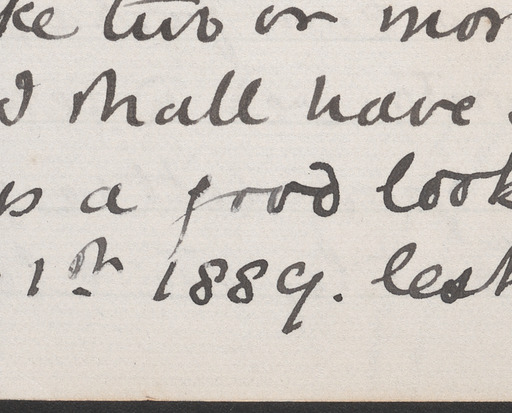 ke two or mor
I shall have
s a good look
1th 1889. lest